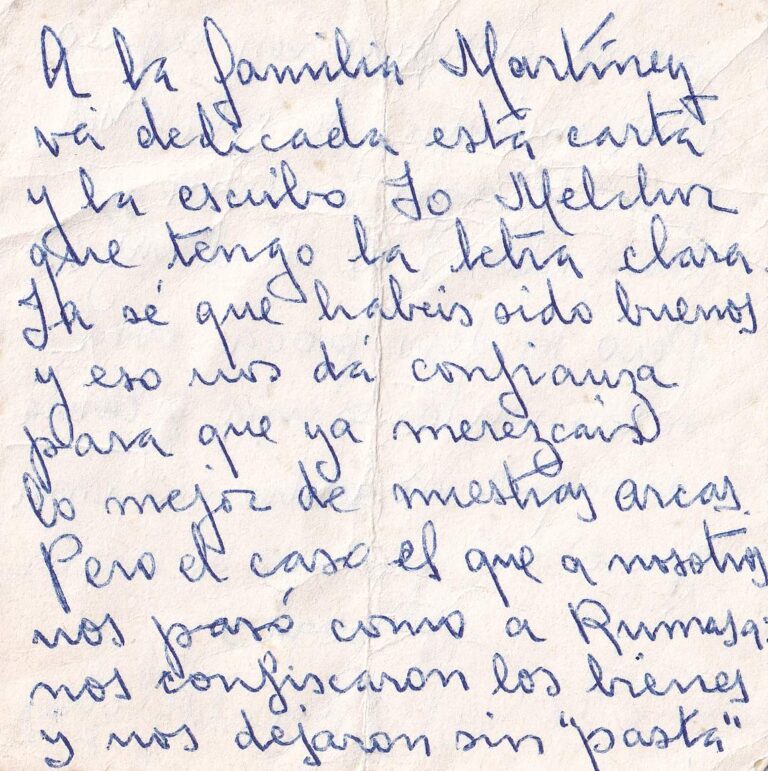 A la familia Martínez
vá dedicada está carta
y la escribo Yo Melchor
que tengo la letra clara.
Ya sé que habeis sido buenos
y eso nos dá confianza
para que ya merezcais
lo mejor de nuestras arcas.
Pero el caso es que a nosotros
nos pasó como a Rumasa:
nos confiscaron los bienes
y nos dejaron sin "pasta"